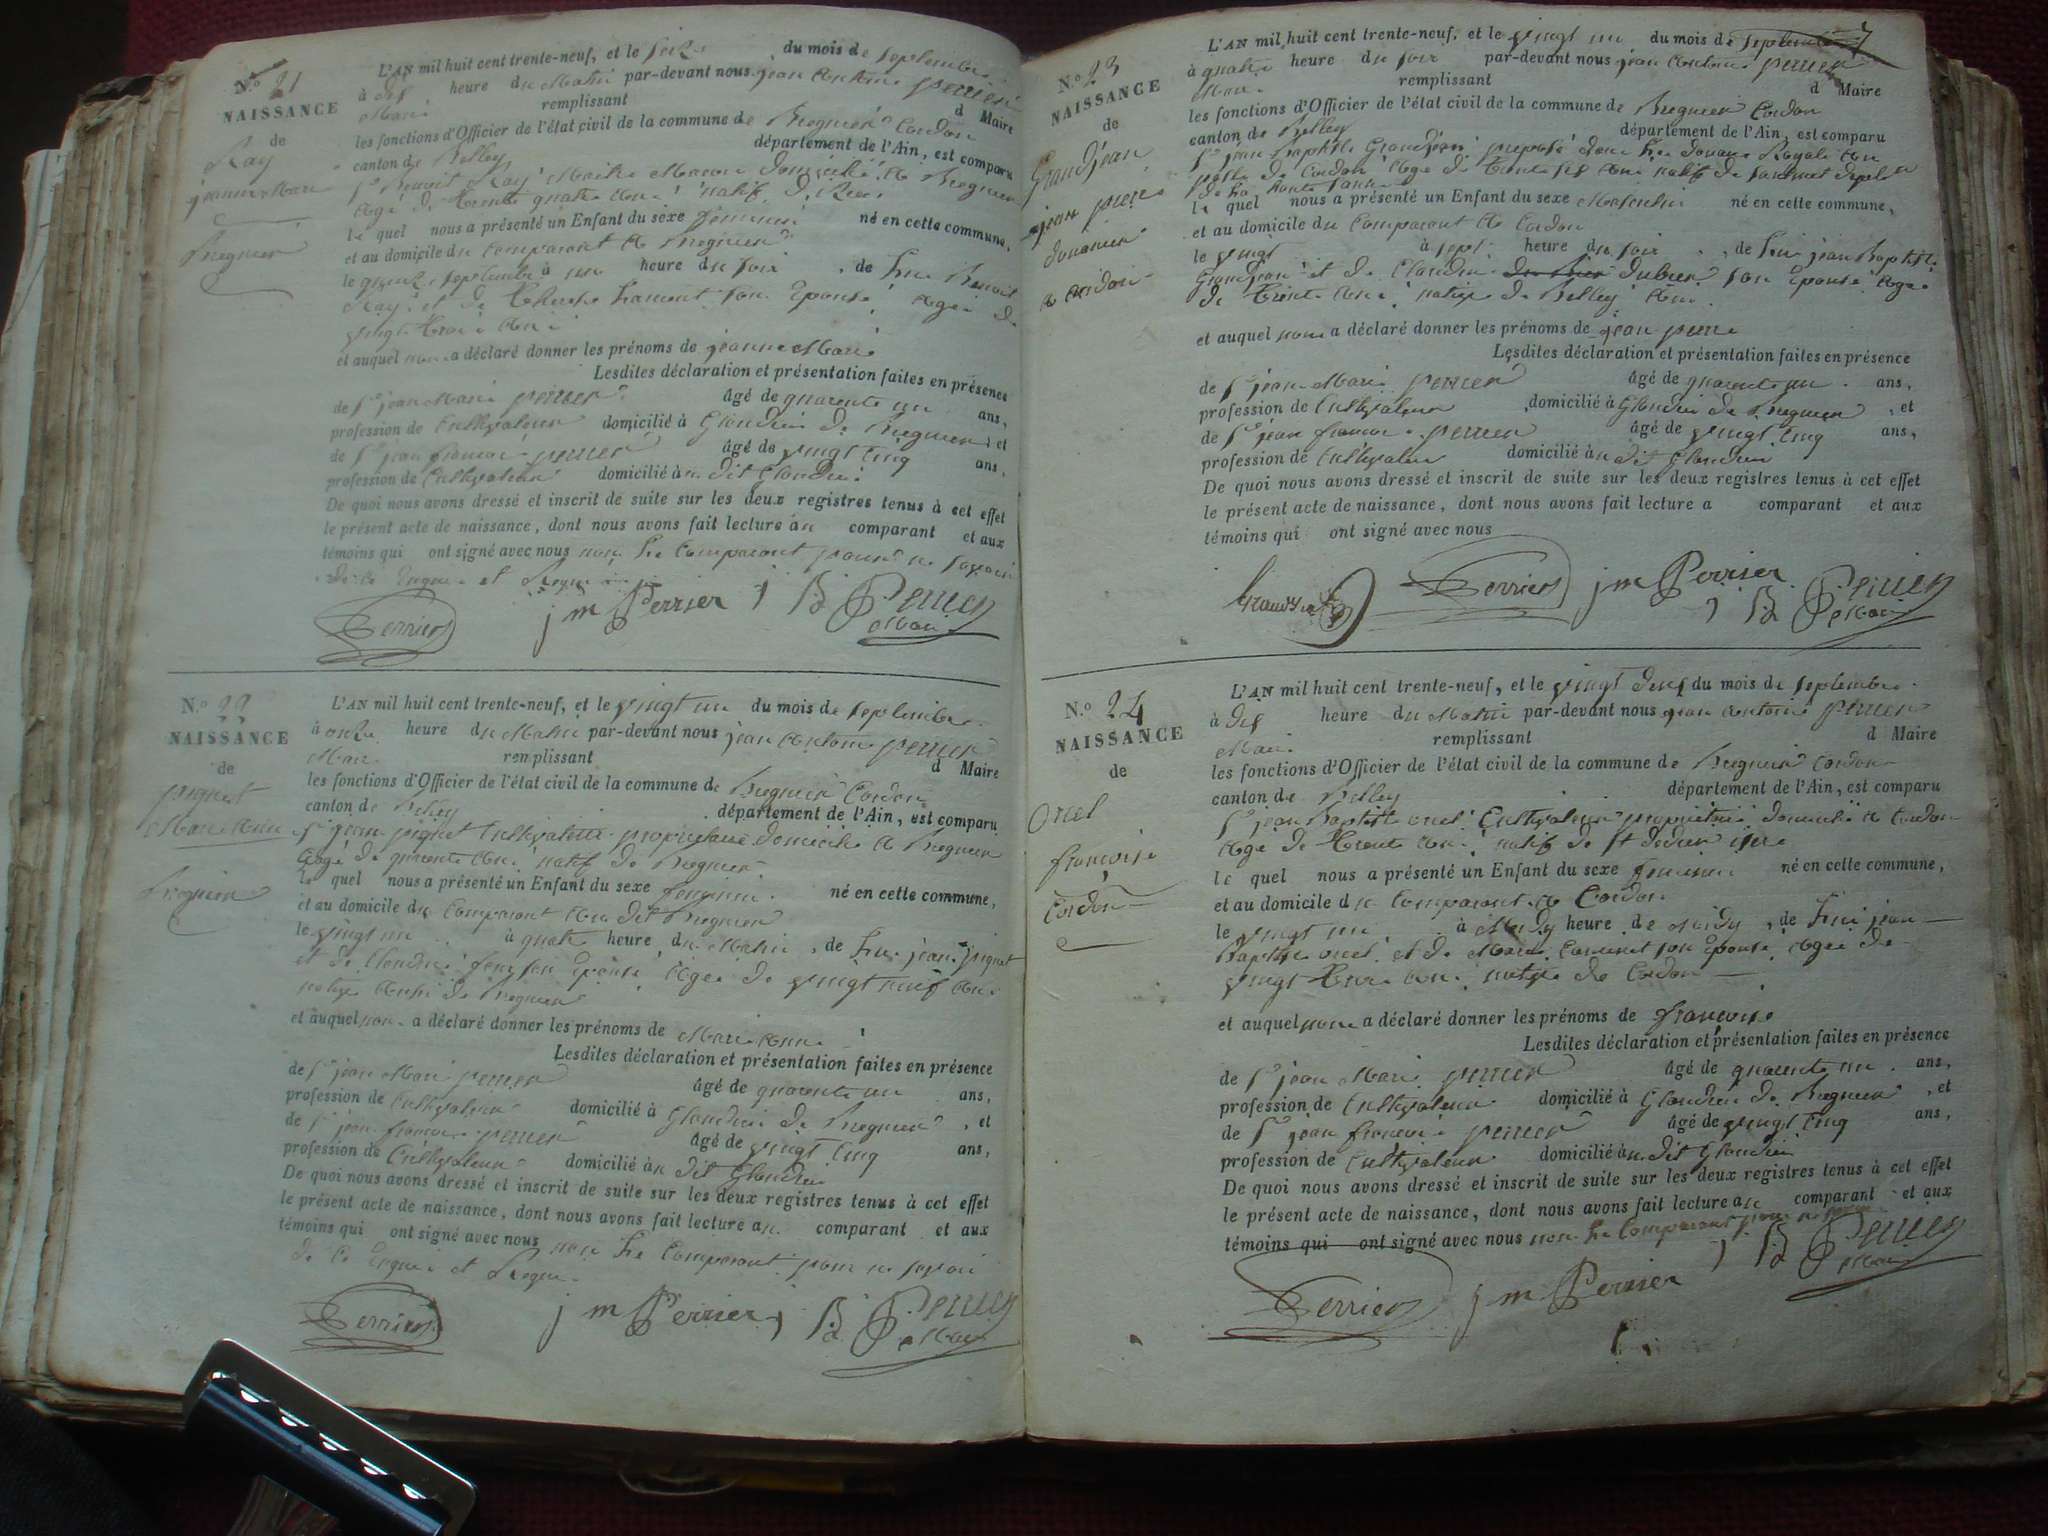 N.º 21
NAISSANCE
de
Ray
jeanne Marie
Bregnier
L'AN mil huit cent trente-neuf, et le seize du mois de septembre
à dix heure du Matin par-devant nous jean Antoine perrier
Maire remplissant d Maire
les fonctions d'Officier de l'état civil de la commune de Bregnier Cordon
canton de Belley département de l'Ain, est comparu
Sr Benoit Ray Maitre Macon domicilié à Bregnier
Agé de trente quatre ans natif de
le quel nous a présenté un Enfant du sexe feminin né en cette commune,
et au domicile du comparant à Bregnier
le quinze septembre à une heure du soir , de lui Benoit
Ray et de Therese son Epouse Agée de
vingt trois ans
et auquel nous a déclaré donner les prénoms de jeanne Marie
Lesdites déclaration et présentation faites en présence
de Sr jean Marie perrier âgé de quarente un ans,
profession de Cultivateur domicilié à Glandieu de Bregnier et
de Sr jean francois perrier âgé de vingt cinq ans,
profession de Cultivateur domicilié au dit Glandieu
De quoi nous avons dressé et inscrit de suite sur les deux registres tenus à cet effet
le présent acte de naissance, dont nous avons fait lecture au comparant et aux
témoins qui ont signé avec nous non le Comparant pour ne savoir
de ce Enquis et Requis
Perrier j m Perrier j B Perrier
Maire
N.º 22
NAISSANCE
de
pignet
Marie Anne
Bregnier
L'AN mil huit cent trente-neuf, et le vingt un du mois de septembre
à onze heure du Matin par-devant nous jean Antoine perrier
Maire remplissant d Maire
les fonctions d'Officier de l'état civil de la commune de Bregnier Cordon
canton de Belley département de l'Ain, est comparu
Sr jean pignet Cultivateur propriétaire domicilié à Bregnier
Agé de quarente ans natif de Bregnier
le quel nous a présenté un Enfant du sexe feminin né en cette commune,
et au domicile du Comparant au dit Bregnier
le vingt un à quatre heure du Matin , de lui jean pignet
et de Claudine son Epouse Agée de vingt neuf ans
native Aussi de Bregnier
et auquel nous a déclaré donner les prénoms de Marie Anne
Lesdites déclaration et présentation faites en présence
de Sr jean Marie perrier âgé de quarente un ans,
profession de Cultivateur domicilié à Glandieu de Bregnier , et
de Sr jean francois perrier âgé de vingt cinq ans,
profession de Cultivateur domicilié au dit Glandieu
De quoi nous avons dressé et inscrit de suite sur les deux registres tenus à cet effet
le présent acte de naissance, dont nous avons fait lecture au comparant et aux
témoins qui ont signé avec nous non le Comparant pour ne savoir
de ce Enquis et Requis
Perrier j m Perrier j B Perrier
Maire
7
N.º 23
NAISSANCE
de
Grandjean
jean pierre
douanier
à cordon
L'AN mil huit cent trente-neuf, et le vingt un du mois de septembre
à quatre heure du soir par-devant nous jean Antoine perrier
Maire remplissant d Maire
les fonctions d'Officier de l'état civil de la commune de Bregnier Cordon
canton de Belley département de l'Ain, est comparu
Sr jean Baptiste Grandjean preposé dans les douane Royale Au
poste de Cordon Agé de trente six ans natif de
de la haute
le quel nous a présenté un Enfant du sexe Masculin né en cette commune,
et au domicile du Comparant à Cordon
le vingt à sept heure du soir , de lui jean Baptiste
Grandjean et de Claudine Dubier son Epouse Agée
de trente ans native de Belley Ain
et auquel nous a déclaré donner les prénoms de jean pierre
Lesdites déclaration et présentation faites en présence
de Sr jean Marie perrier âgé de quarente un ans,
profession de Cultivateur domicilié à Glandieu de Bregnier , et
de Sr jean francois perrier âgé de vingt cinq ans,
profession de Cultivateur domicilié au dit Glandieu
De quoi nous avons dressé et inscrit de suite sur les deux registres tenus à cet effet
le présent acte de naissance, dont nous avons fait lecture a comparant et aux
témoins qui ont signé avec nous
Grandjean Perrier j m Perrier j B Perrier
Maire
N.º 24
NAISSANCE
de
Oncel
françoise
Cordon
L'AN mil huit cent trente-neuf, et le vingt deux du mois de septembre
à dix heure du Matin par-devant nous jean Antoine perrier
Maire remplissant d Maire
les fonctions d'Officier de l'état civil de la commune de Bregnier Cordon
canton de Belley département de l'Ain, est comparu
Sr jean Baptiste Oncel Cultivateur propriétaire domicilié à Cordon
Agé de trente ans natif de St dedier isere
le quel nous a présenté un Enfant du sexe feminin né en cette commune,
et au domicile du Comparant à Cordon
le vingt un à Midy heure de Midy , de lui jean
Baptiste Oncel et de Marie son Epouse Agée de
vingt trois ans native de Cordon
et auquel nous a déclaré donner les prénoms de françoise
Lesdites déclaration et présentation faites en présence
de Sr jean Marie perrier âgé de quarente un ans,
profession de Cultivateur domicilié à Glandieu de Bregnier , et
de Sr jean francois perrier âgé de vingt cinq ans,
profession de Cultivateur domicilié au dit Glandieu
De quoi nous avons dressé et inscrit de suite sur les deux registres tenus à cet effet
le présent acte de naissance, dont nous avons fait lecture au comparant et aux
témoins qui ont signé avec nous non le Comparant pour ne
Perrier j m Perrier j B Perrier
Maire